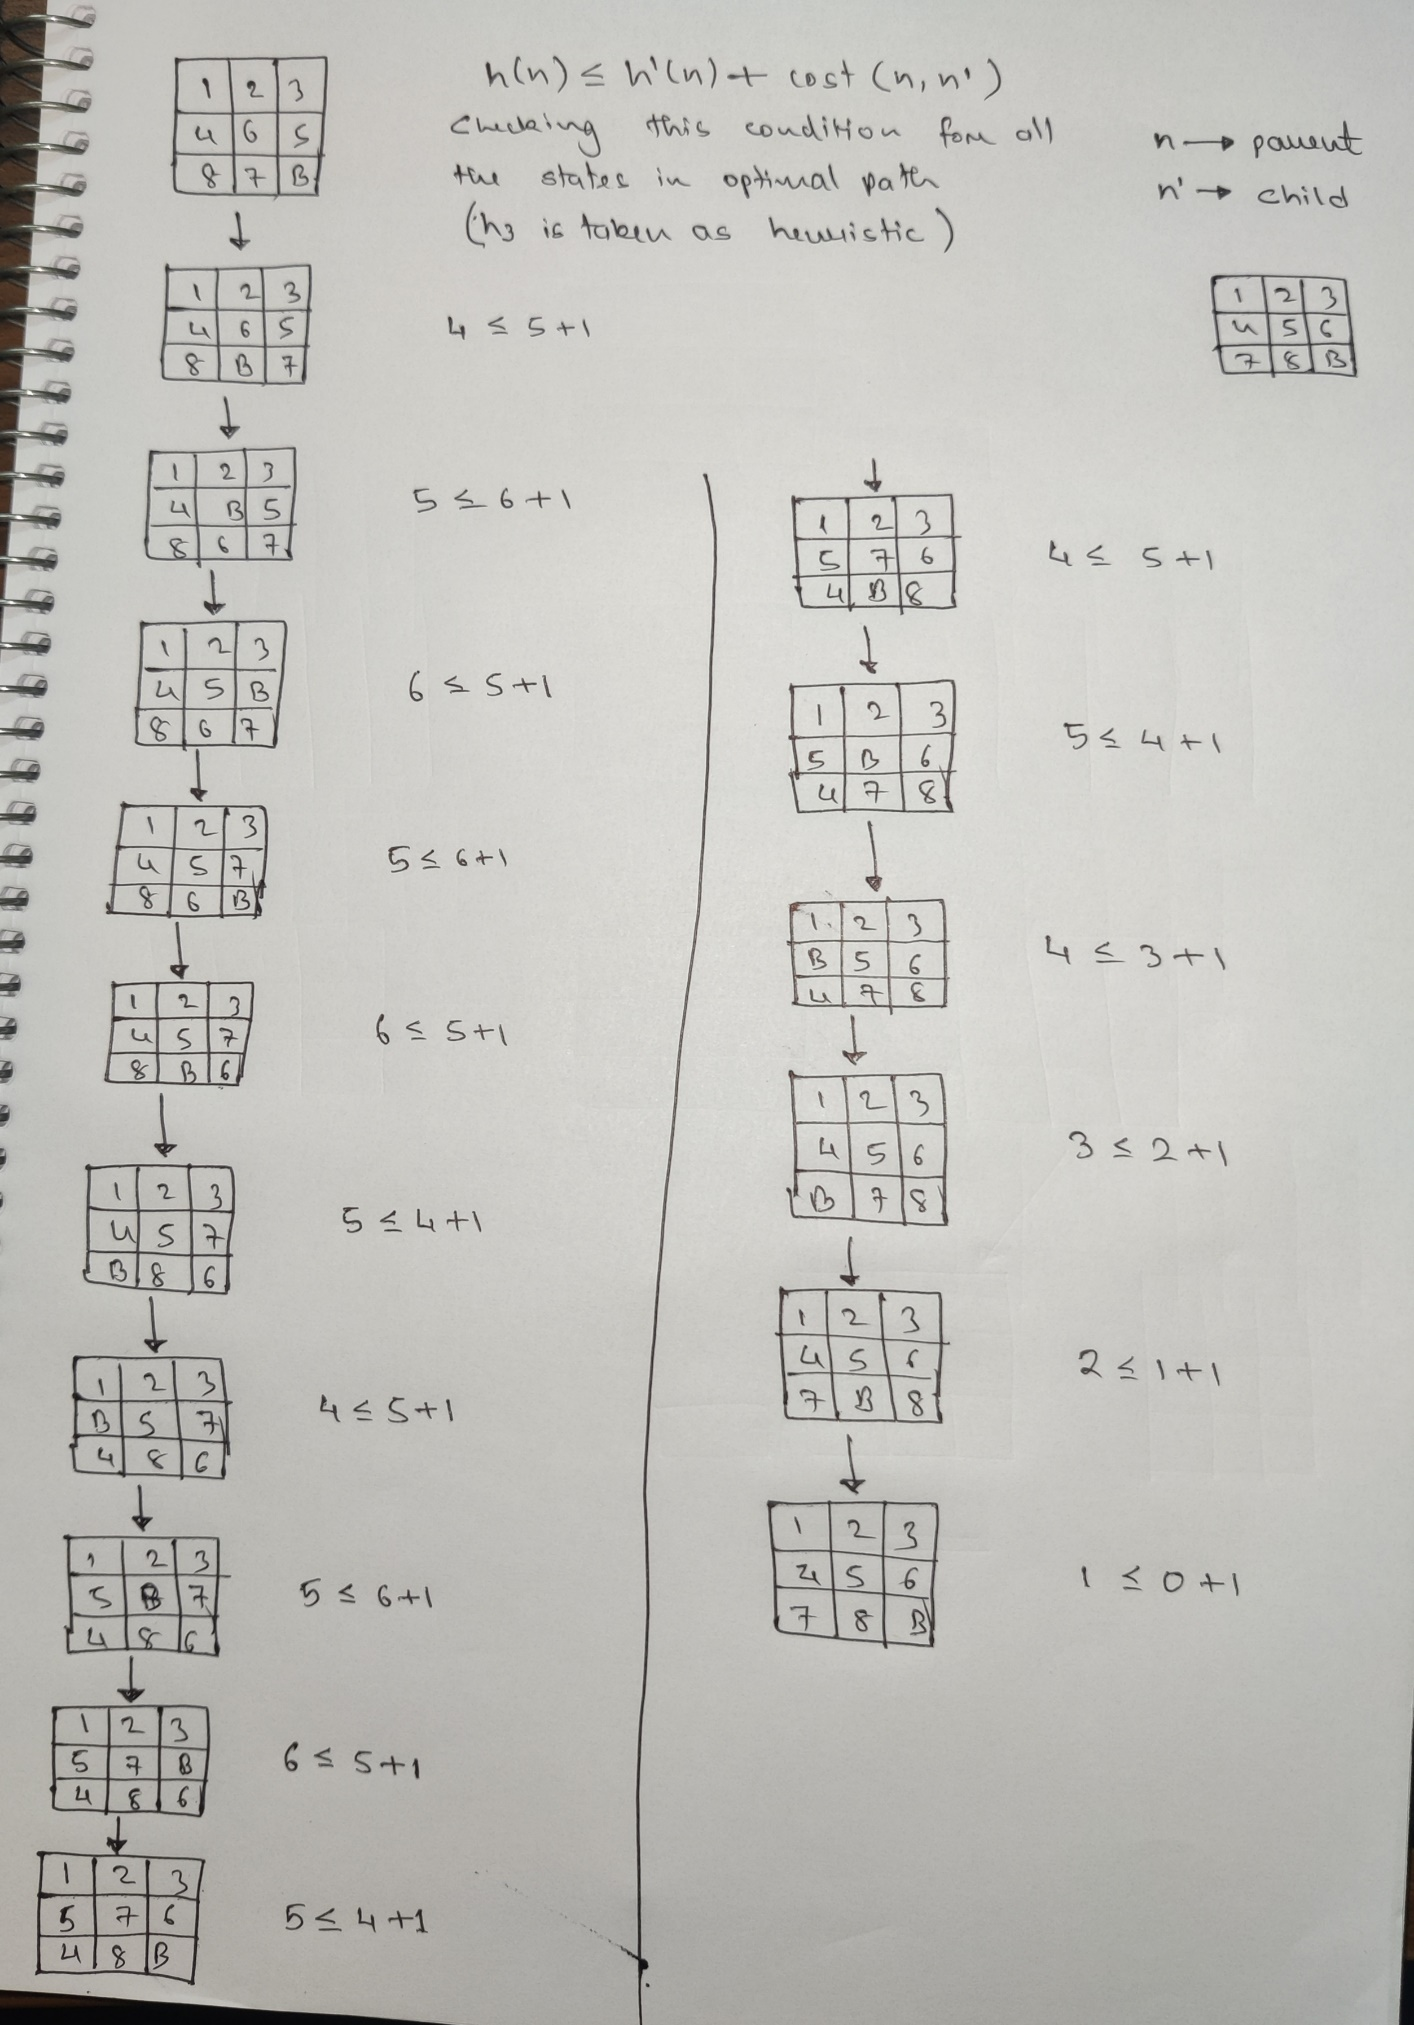 h(n) ≤ h'(n) + cost (n, n')
Checking this condition fore all
the states in optimal path
(h3 is taken as heuristic)
n → parent
n' → child
1 2 3
4 5 6
7 8 B
1 2 3
4 6 5
8 7 B
↓
1 2 3
4 6 5
8 B 7
4 ≤ 5+1
↓
1 2 3
4 B 5
8 6 7
5 ≤ 6+1
↓
1 2 3
4 5 B
8 6 7
6 ≤ 5+1
↓
1 2 3
4 5 7
8 6 B
5 ≤ 6+1
↓
1 2 3
4 5 7
8 B 6
6 ≤ 5+1
↓
1 2 3
4 5 7
B 8 6
5 ≤ 4+1
↓
1 2 3
B 5 7
4 8 6
4 ≤ 5+1
↓
1 2 3
5 B 7
4 8 6
5 ≤ 6+1
↓
1 2 3
5 7 B
4 8 6
6 ≤ 5+1
↓
1 2 3
5 7 6
4 8 B
5 ≤ 4+1
↓
1 2 3
5 7 6
4 B 8
4 ≤ 5+1
↓
1 2 3
5 B 6
4 7 8
5 ≤ 4+1
↓
1 2 3
B 5 6
4 7 8
4 ≤ 3+1
↓
1 2 3
4 5 6
B 7 8
3 ≤ 2+1
↓
1 2 3
4 5 6
7 B 8
2 ≤ 1+1
↓
1 2 3
4 5 6
7 8 B
1 ≤ 0+1